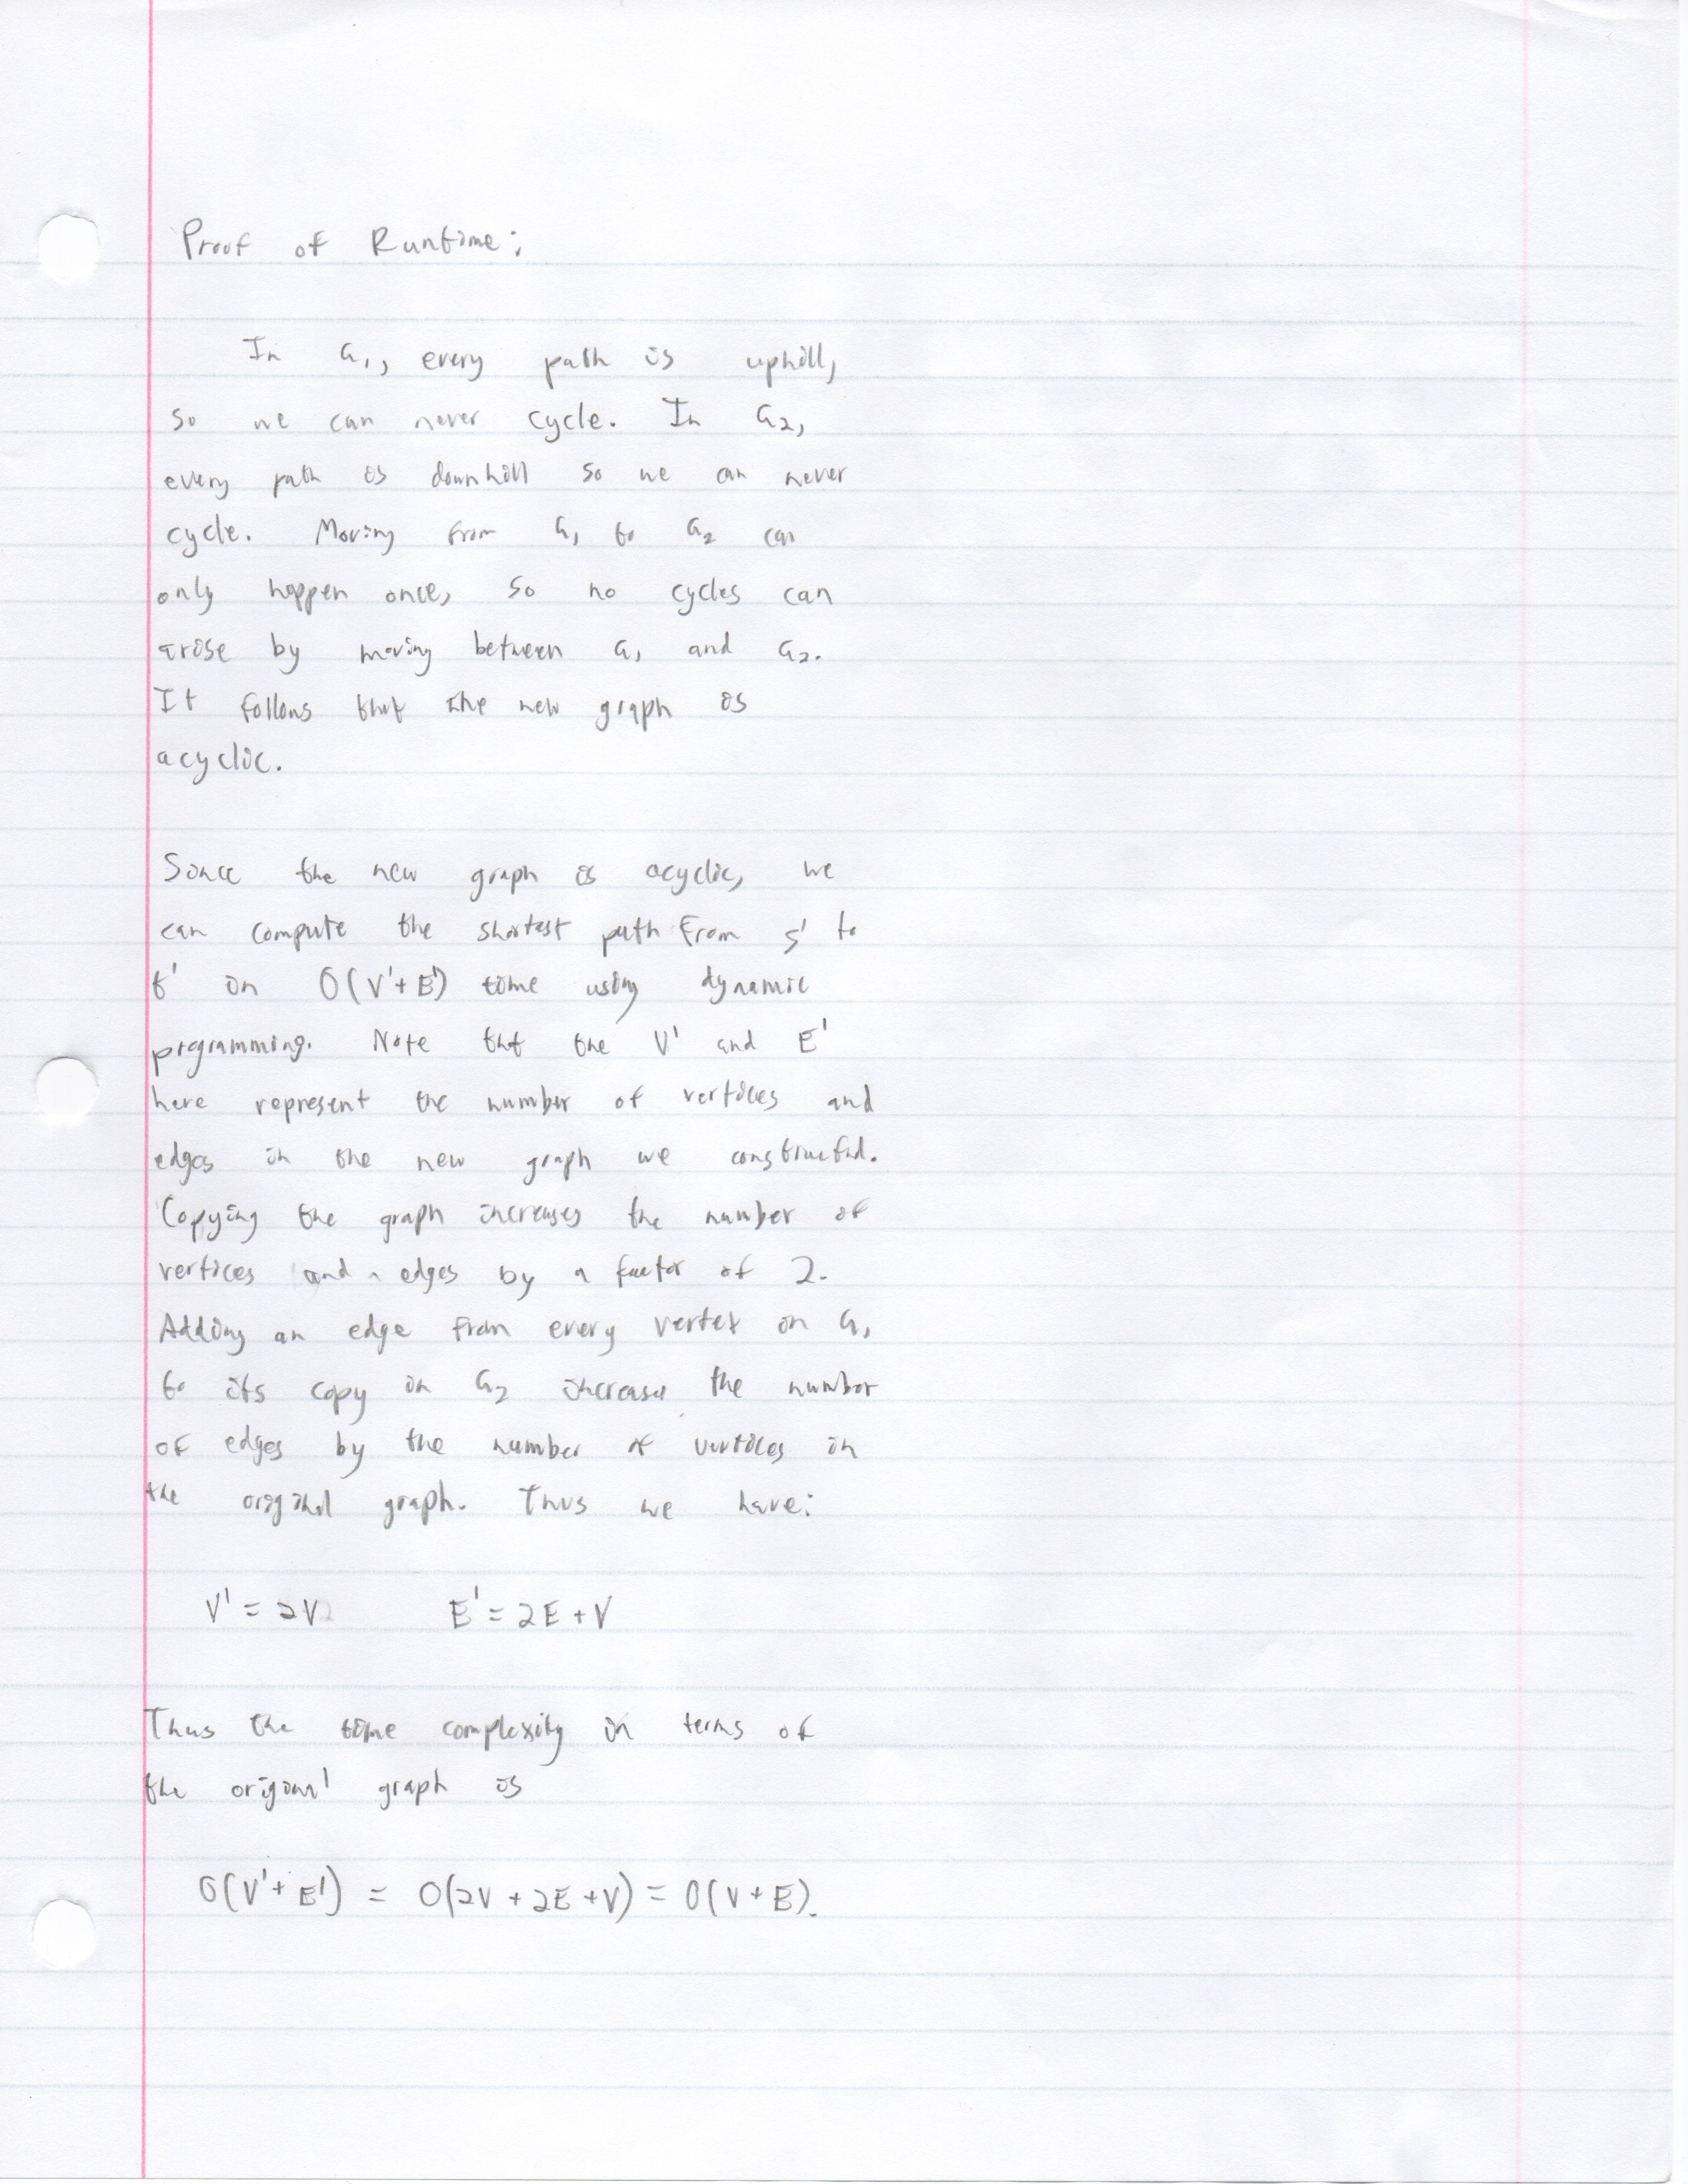 Proof of Runtime:
In G₁, every path is uphill,
so we can never cycle. In G₂,
every path is downhill so we can never
cycle. Moving from G₁ to G₂ can
only happen once, so no cycles can
arise by moving between G₁ and G₂.
It follows that the new graph is
acyclic.
Since the new graph is acyclic, we
can compute the shortest path from s' to
t' in O(V'+E') time using dynamic
programming. Note that the V' and E'
here represent the number of vertices and
edges in the new graph we constructed.
Copying the graph increases the number of
vertices and edges by a factor of 2.
Adding an edge from every vertex in G₁
to its copy in G₂ increases the number
of edges by the number of vertices in
the original graph. Thus we have:
V' = 2V E' = 2E + V
Thus the time complexity in terms of
the original graph is
O(V' + E') = O(2V + 2E + V) = O(V + E).